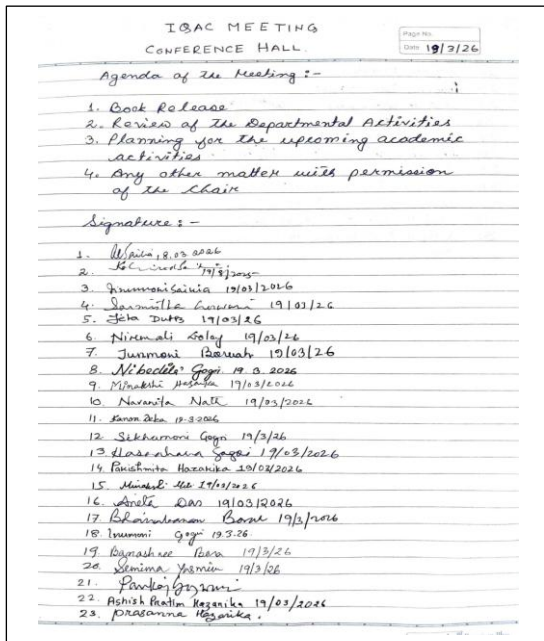 IQAC MEETING
CONFERENCE HALL.
Page No.
Date 19/3/26
Agenda of the Meeting :-
1. Book Release
2. Review of the Departmental Activities
3. Planning for the upcoming academic
activities
4. Any other matter with permission
of the Chair
Signature :-
1.
2.
3. Saikia 19/03/2026
4. Sarmistha Goswami 19/03/26
5. Dutta 19/03/26
6. Niremali Doley 19/03/26
7. Junmoni Boruah 19/03/26
8. Nibedita Gogoi 19.3.2026
9. Minakshi Hazarika 19/03/2026
10. Navanita Nath 19/03/2026
11. Kanon Deka 19-3-2026
12 Sikhamoni Gogoi 19/3/26
13. Gogoi 19/03/2026
14. Parishmita Hazarika 19/03/2026
15. Minakshi 19/03/2026
16. Das 19/03/2026
17. 19/3/2026
18. Gogoi 19.3.26.
19. Banashree Bora 19/3/26
20. Semima Yasmin 19/3/26
21.
22. Ashish Pratim Hazarika 19/03/2026
23. Prasanna Hazarika.